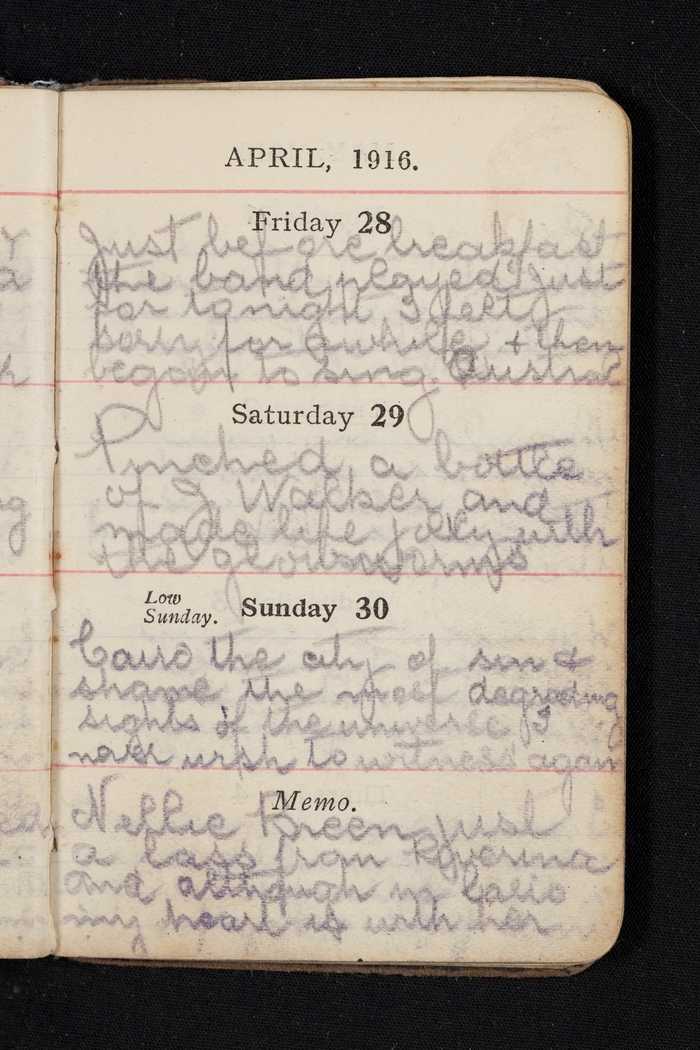 APRIL, 1916.
Friday 28
Just before breakfast
the band played "Just
for tonight" I felt
sorry for awhile & then
began to sing Austral
Saturday 29
Pinched a bottle
of J Walker and
made life jolly with
the glowworms
Low
Sunday. Sunday 30
Cairo the city of sin &
shame the most degrading
sights of the universe I
never wish to witness again
Memo.
Nellie Breen just
a lass from Riverina
and although in Cairo
my heart is with her